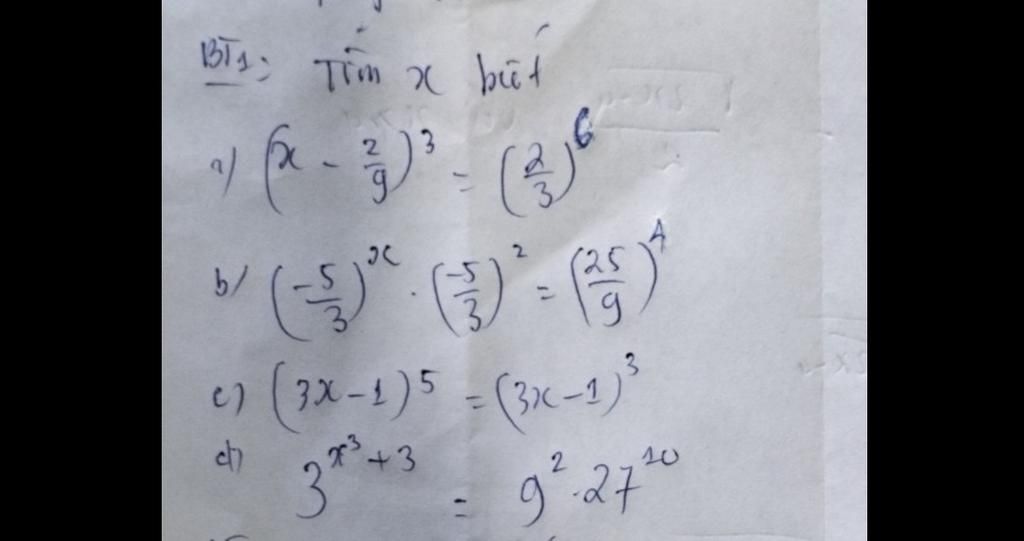 BT1: Tìm x biết
a) (x - 2/9)^3 = (2/3)^6
b/ (-5/3)^x . (-5/3)^2 = (25/9)^4
c) (3x-1)^5 = (3x-1)^3
d) 3^(x^3+3) = 9^2 . 27^10